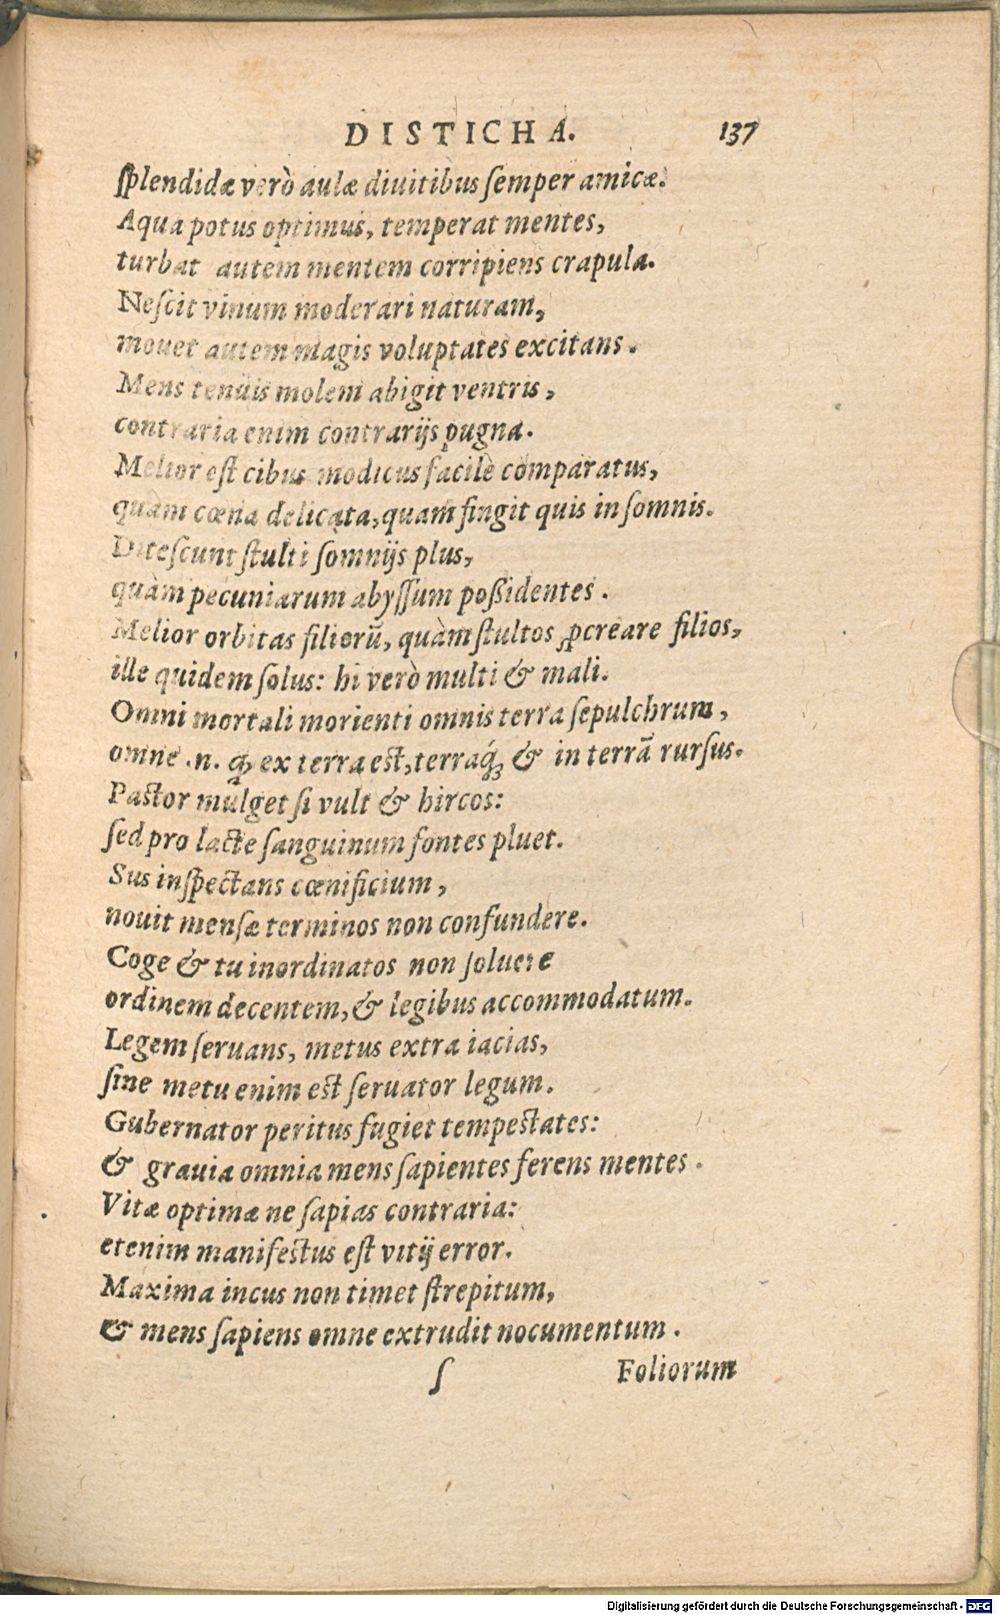 DISTICHA. 137
ſplendidæ verò aulæ diuitibus ſemper amicæ.
Aqua potus optimus, temperat mentes,
turbat autem mentem corripiens crapula.
Neſcit vinum moderari naturam,
mouet autem magis voluptates excitans.
Mens tenuis molem abigit ventris,
contraria enim contrarijs pugna.
Melior eſt cibus modicus facilè comparatus,
quàm cœna delicata, quam fingit quis in ſomnis.
Diteſcunt ſtulti ſomnijs plus,
quàm pecuniarum abyſſum poßidentes.
Melior orbitas filiorũ, quàm ſtultos ꝓcreare filios,
ille quidem ſolus: hi verò multi & mali.
Omni mortali morienti omnis terra ſepulchrum,
omne .n. ꝙ ex terra eſt, terraq́ꝫ & in terrã rurſus.
Paſtor mulget ſi vult & hircos:
ſed pro lacte ſanguinum fontes pluet.
Sus inſpectans cœnificium,
nouit menſæ terminos non confundere.
Coge & tu inordinatos non ſoluere
ordinem decentem, & legibus accommodatum.
Legem ſeruans, metus extra iacias,
ſine metu enim eſt ſeruator legum.
Gubernator peritus fugiet tempeſtates:
& grauia omnia mens ſapientes ferens mentes.
Vitæ optimæ ne ſapias contraria:
etenim manifeſtus eſt vitij error.
Maxima incus non timet ſtrepitum,
& mens ſapiens omne extrudit nocumentum.
ſ Foliorum
Digitalisierung gefördert durch die Deutsche Forschungsgemeinschaft - DFG